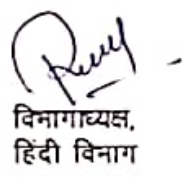 विभागाध्यक्ष,
हिंदी विभाग